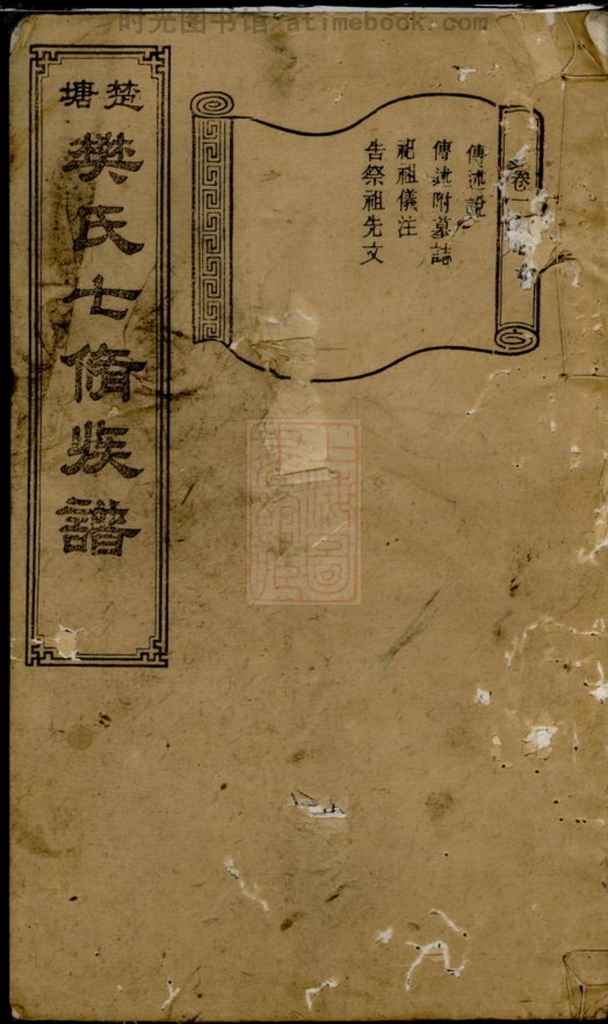 时光图书馆 atimebook.com
楚塘
樊氏七脩族譜
卷一
傳述說
傳述附墓誌
祀祖儀注
告祭祖先文